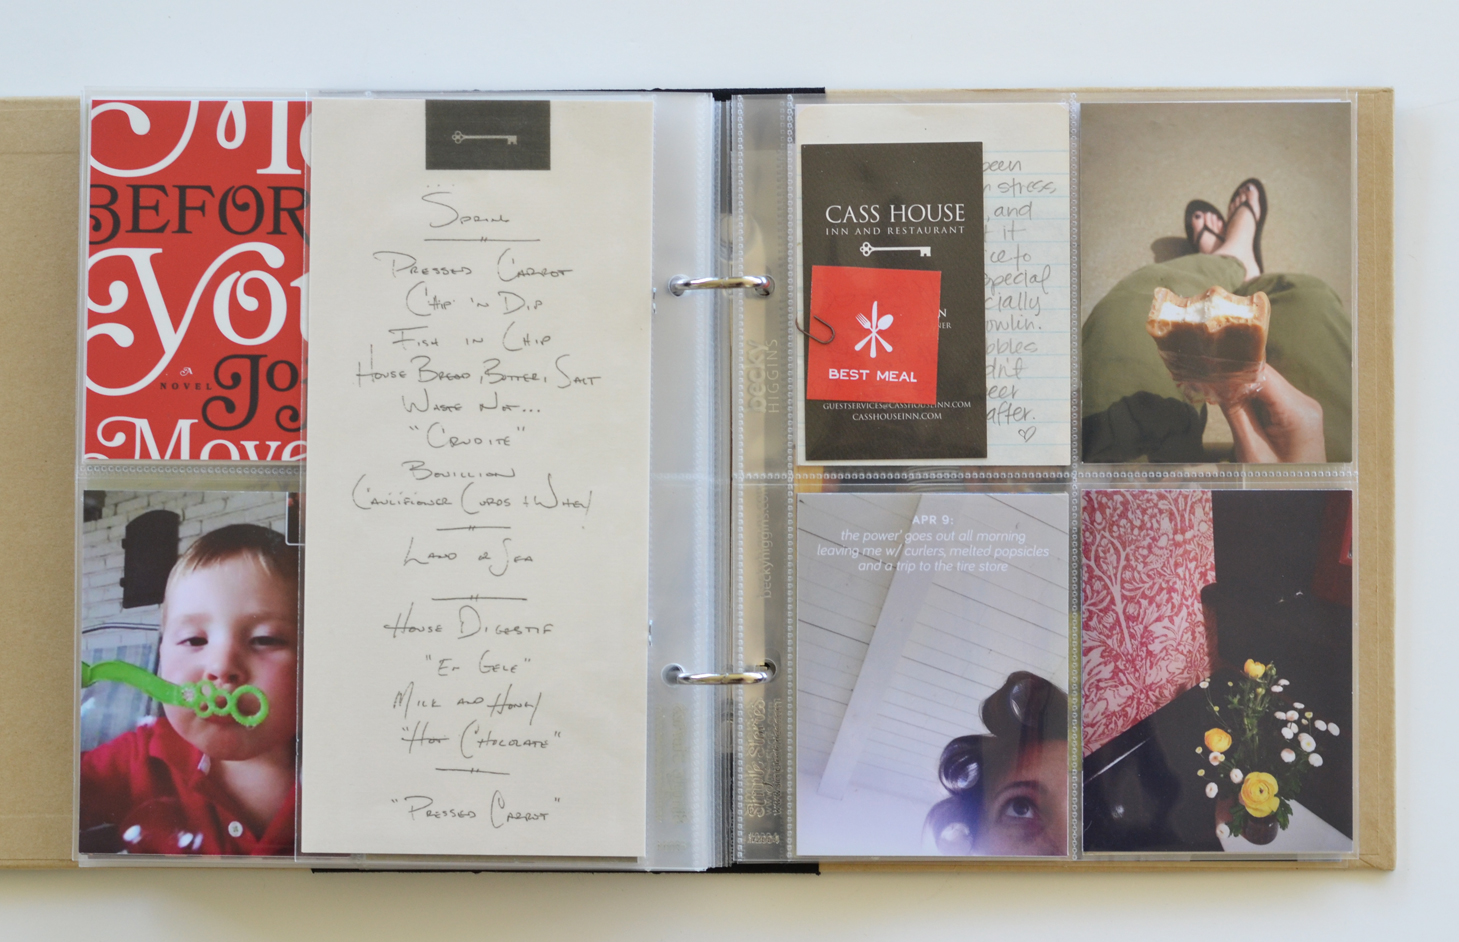 Me
BEFOR
you
A
NOVEL
Jo
Moye
Spring
Pressed Carrot
Chip 'n Dip
Fish in Chip
House Bread, Butter, Salt
Waste Not...
"Crudite"
Bouillion
Cauliflower Curds + Whey
Land & Sea
House Digestif
"En Gele"
Milk and Honey
"Hot Chocolate"
"Pressed Carrot"
becky
HIGGINS
beckyhiggins.co
CASS HOUSE
INN AND RESTAURANT
N
NER
BEST MEAL
GUESTSERVICES@CASSHOUSEINN.COM
CASSHOUSEINN.COM
been
n stress
, and
t it
ce to
special
cially
owlin.
bbles
dn't
beer
after.
APR 9:
the power goes out all morning
leaving me w/ curlers, melted popsicles
and a trip to the tire store